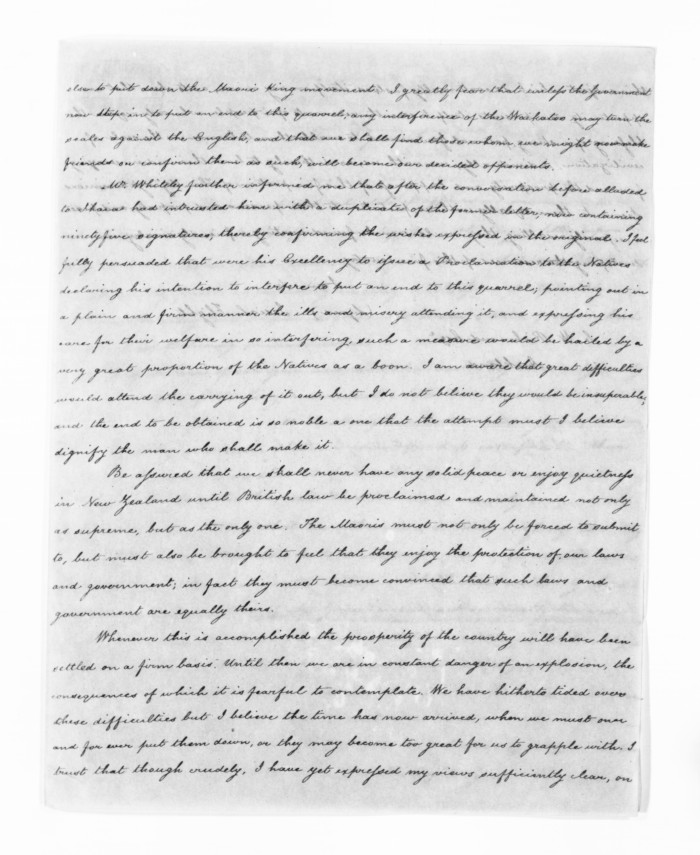 also to put down the Maori King movement, I greatly fear that unless the Government
now steps in to put an end to this quarrel; any interference of the Waikatos may turn the
scales against the English, and that we shall find those whom we might now make
friends or confirm them as such, will become our decided opponents.
Mr. Whiteley further informed me that after the conversation before alluded
to Ihaia had intrusted him with a duplicate of the former letter, now containing
ninety five signatures, thereby confirming the wishes expressed in the original. I feel
fully persuaded that were his Excellency to issue a Proclamation to the Natives
declaring his intention to interfere to put an end to this quarrel; pointing out in
a plain and firm manner the ills and misery attending it, and expressing his
care for their welfare in so interfering, such a measure would be hailed by a
very great proportion of the Natives as a boon. I am aware that great difficulties
would attend the carrying of it out, but I do not believe they would be insuperable,
and the end to be obtained is so noble a one that the attempt must I believe
dignify the man who shall make it.
Be assured that we shall never have any solid peace or enjoy quietness
in New Zealand until British law be proclaimed and maintained not only
as supreme, but as the only one. The Maoris must not only be forced to submit
to, but must also be brought to feel that they enjoy the protection of our laws
and government; in fact they must become convinced that such laws and
government are equally theirs.
Whenever this is accomplished the prosperity of the country will have been
settled on a firm basis. Until then we are in constant danger of an explosion, the
consequences of which it is fearful to contemplate. We have hitherto tided over
these difficulties but I believe the time has now arrived, when we must once
and for ever put them down, or they may become too great for us to grapple with. I
trust that though crudely, I have yet expressed my views sufficiently clear, on